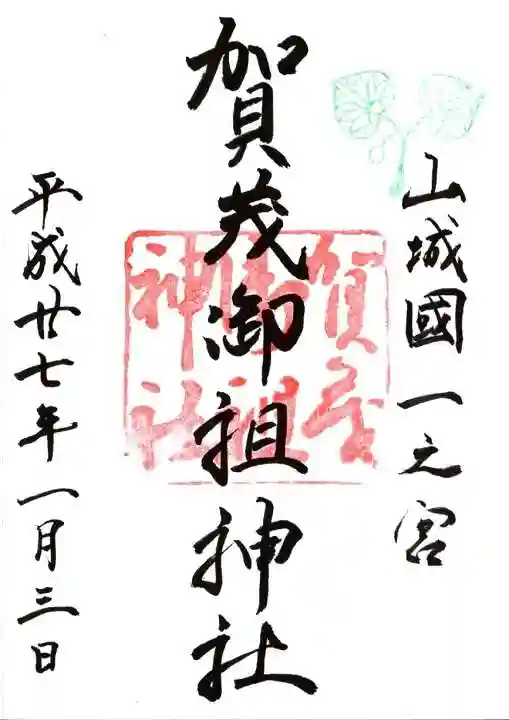 山城國一之宮
賀茂御祖神社
賀茂
御祖
神社
平成廿七年一月三日